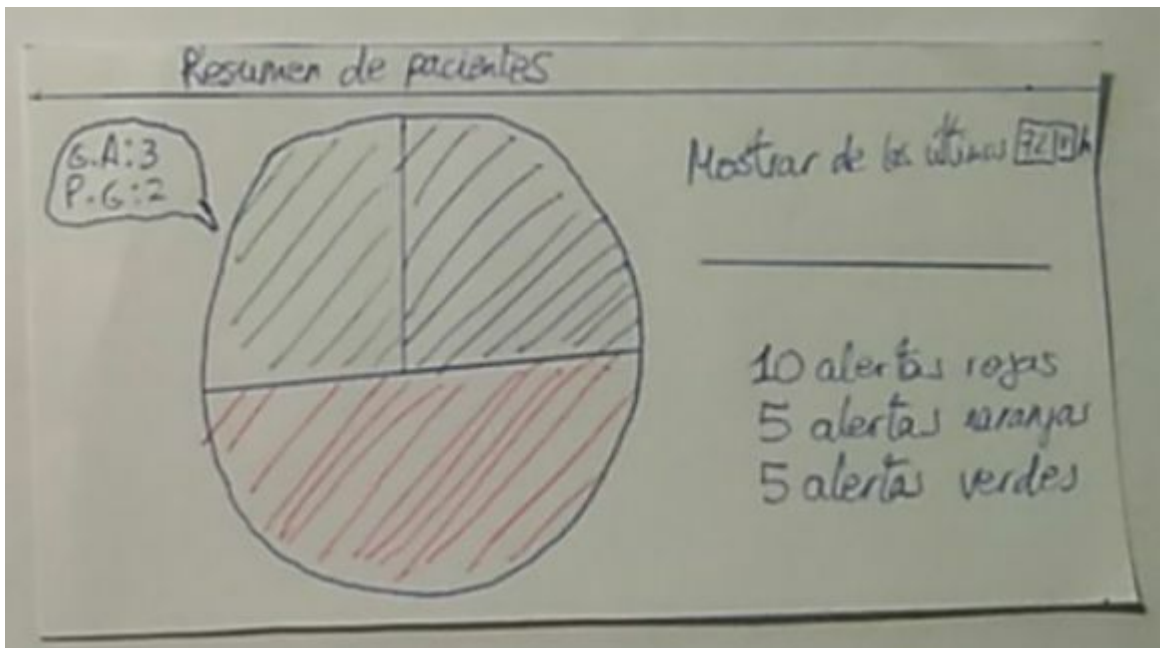 Resumen de pacientes
G.A:3
P.G:2
Mostrar de las últimas 72 h
10 alertas rojas
5 alertas naranjas
5 alertas verdes